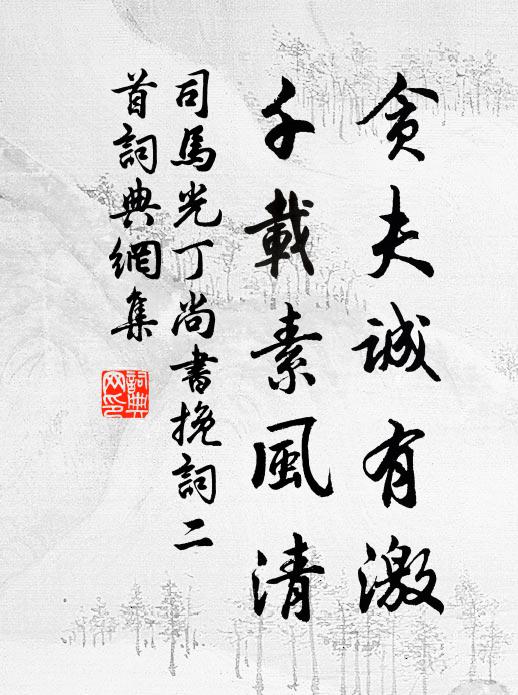 貪夫誠有激
千載素風清
司馬光丁尚書挽詞二
首詞典網集
詞典
网印